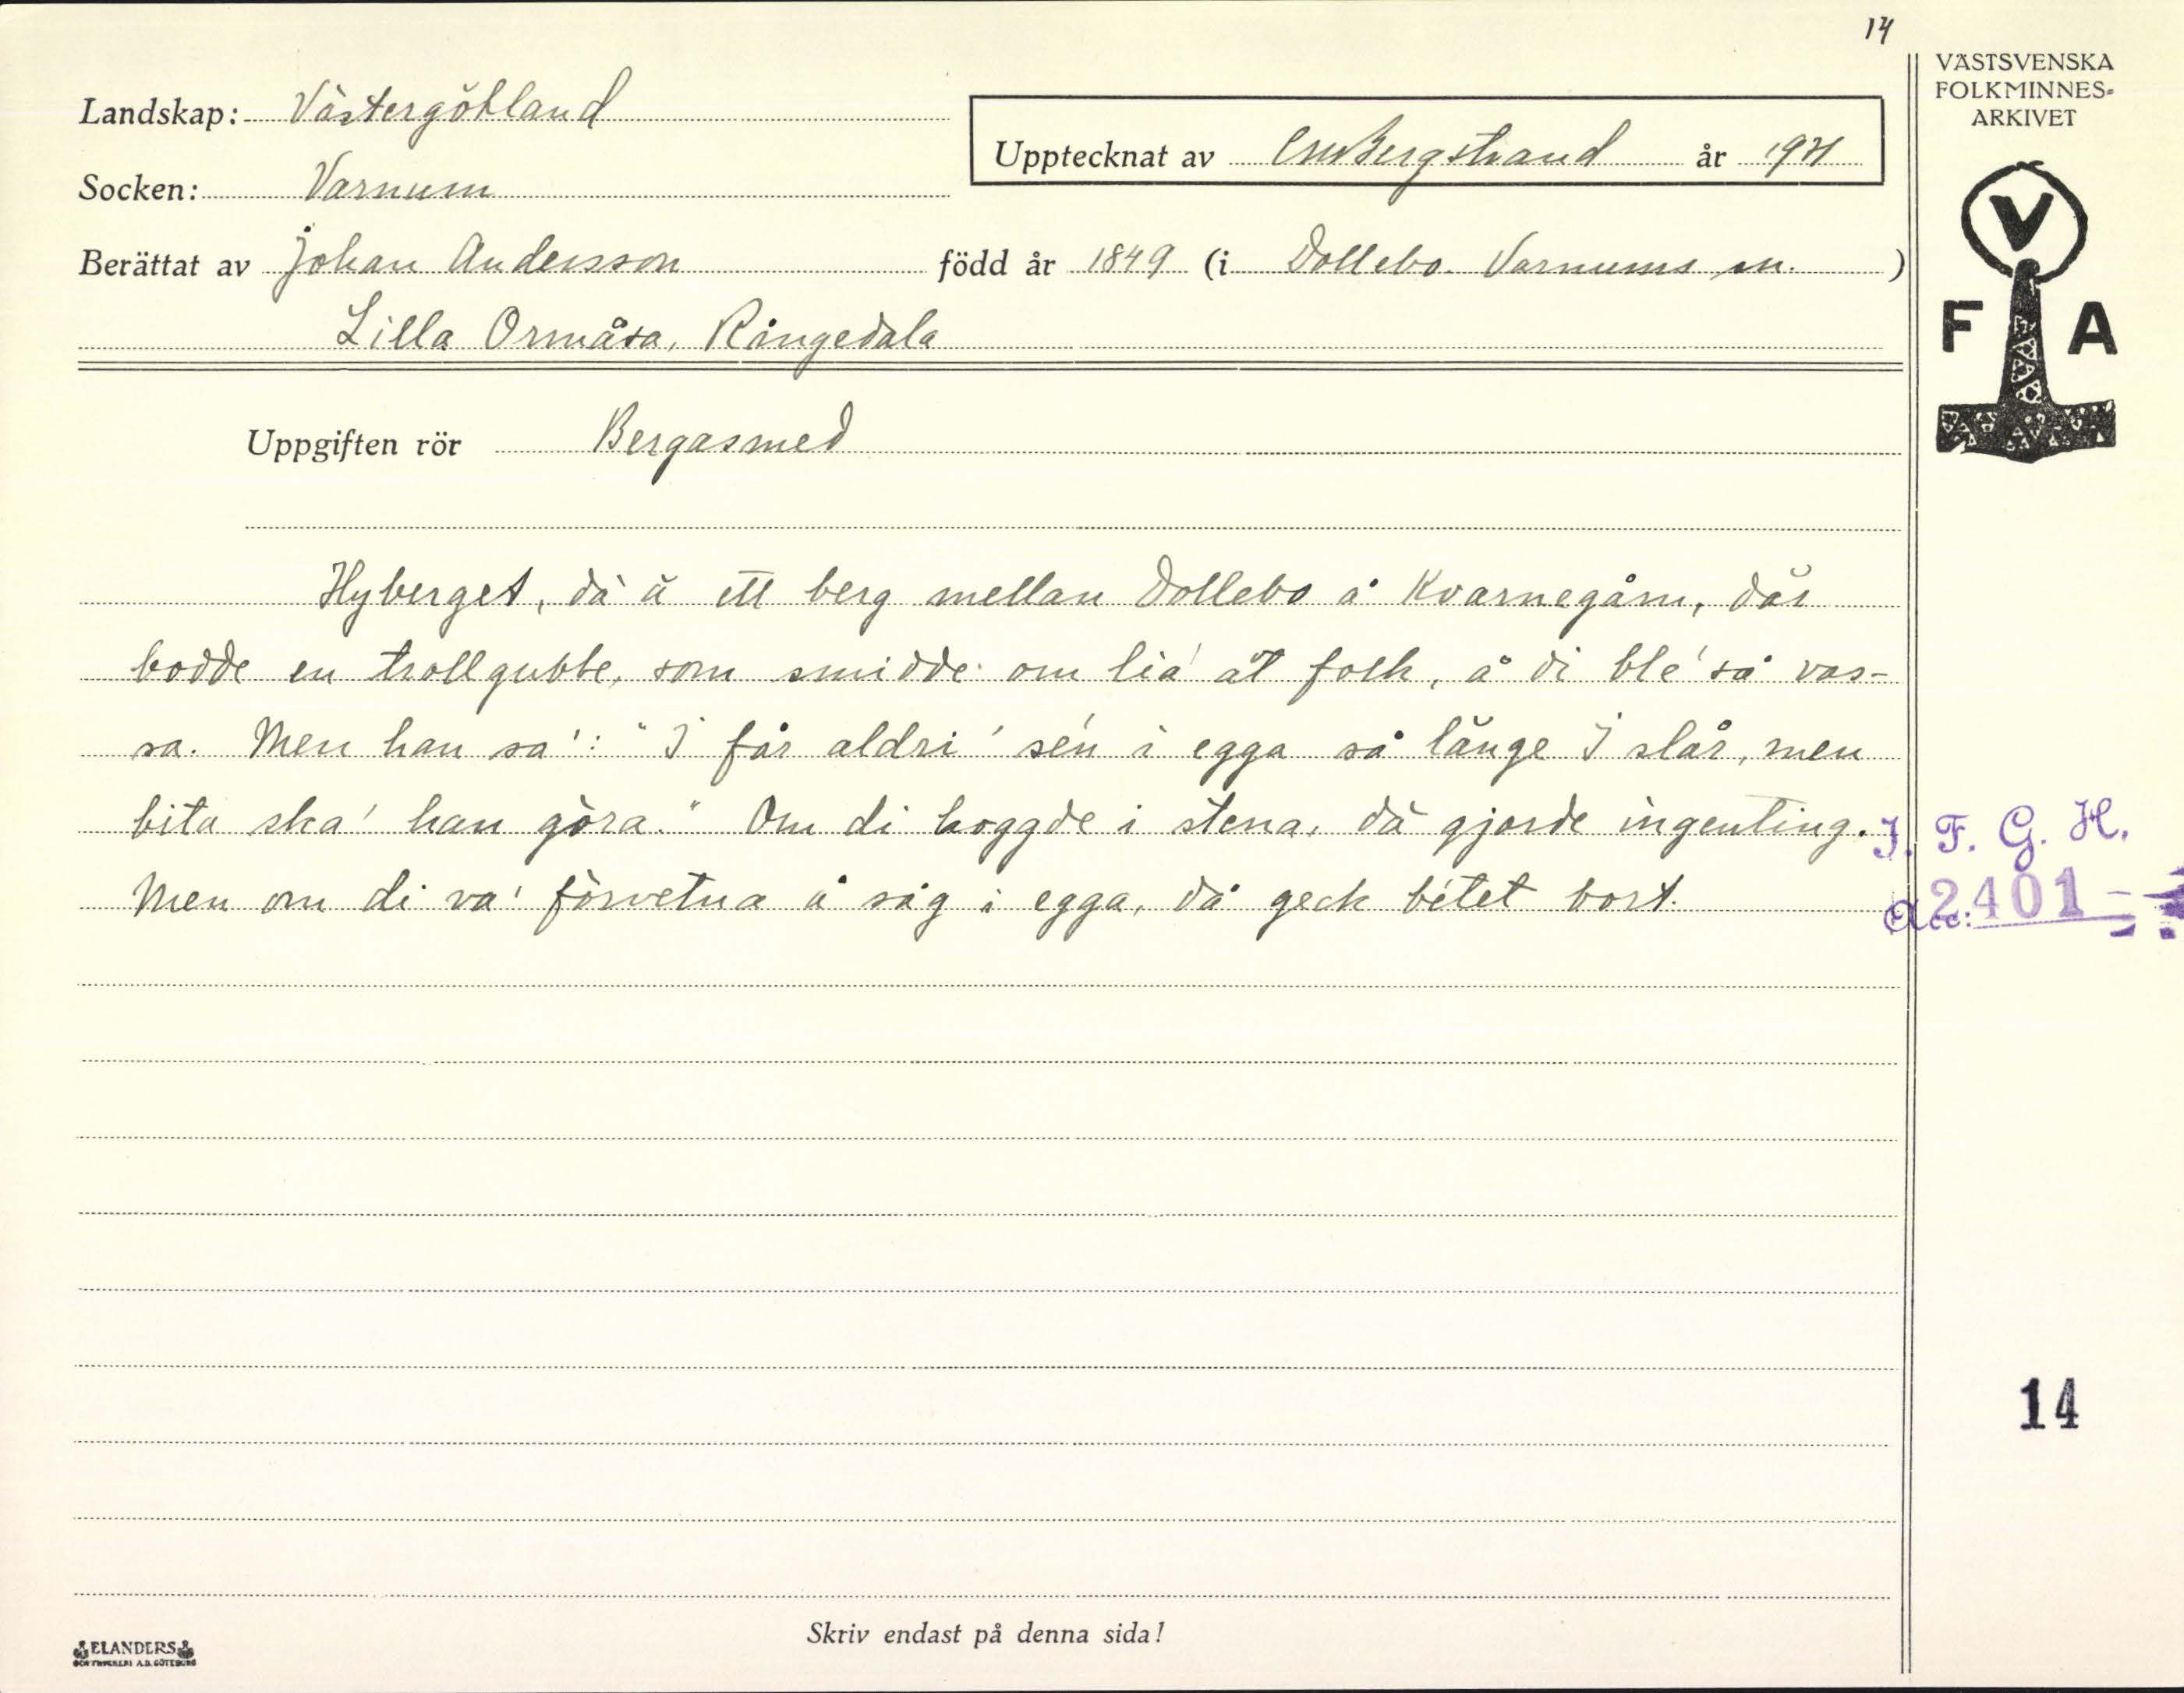 14
VÄSTSVENSKA
FOLKMINNES-
ARKIVET
Landskap: Västergötland
Upptecknat av CMBergstrand år 1921
Socken: Varnum
Berättat av Johan Andersson född år 1849 (i Dollebo Varnums sn. )
Lilla Ormåsa, Rångedala
V
F A
Uppgiften rör Bergasmed
Hyberget, dä ä ett berg mellan Dollebo å Kvarnegårn, där
bodde en trollgubbe, som smidde om lia' åt folk, å di ble' så vas-
sa. Men han sa': "I får aldri' sen i egga så länge I slår, men
bita ska' han göra." Om di hoggde i stena, dä gjorde ingenting.
Men om di va' förvetna å såg i egga, då geck betet bort.
I. F. G. H.
Acc: 2401
14
Skriv endast på denna sida!
ELANDERS
BOKTRYCKERI A.B. GÖTEBORG